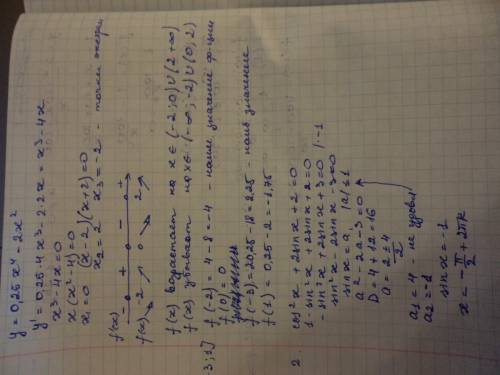 y = 0,25x⁴ - 2x²
y' = 0,25·4x³ - 2·2x = x³ - 4x
x³ - 4x = 0
x(x² - 4) = 0
x₁ = 0 (x - 2)(x + 2) = 0
x₂ = 2 x₃ = -2 - точки
f'(x) - + - +
f(x) -2 ↗ 0 ↘ 2 ↗
f(x) возрастает на x ∈ (-2; 0) ∪ (2 +∞)
f(x) убывает на x ∈ (-∞; -2) ∪ (0; 2)
-3; 1] f(-2) = 4 - 8 = -4 - наим. значение ф-ции
f(0) = 0
f(-3) = 20,25 - 18 = 2,25 - наиб значение
f(1) = 0,25 - 2 = -1,75
2 cos²x - 2sinx + 2 = 0
1 - sin²x + 2sinx + 2 = 0
- sin²x + 2sinx + 3 = 0 /·-1
sin²x - 2sinx - 3 = 0
sinx = a, |a| ≤ 1
a² - 2a - 3 = 0
D = 4 + 12 = 16
a = 2 ± 4 / 2
a₁ = 4 - не удовл
a₂ = -1
sinx = -1
x = -π/2 + 2πk